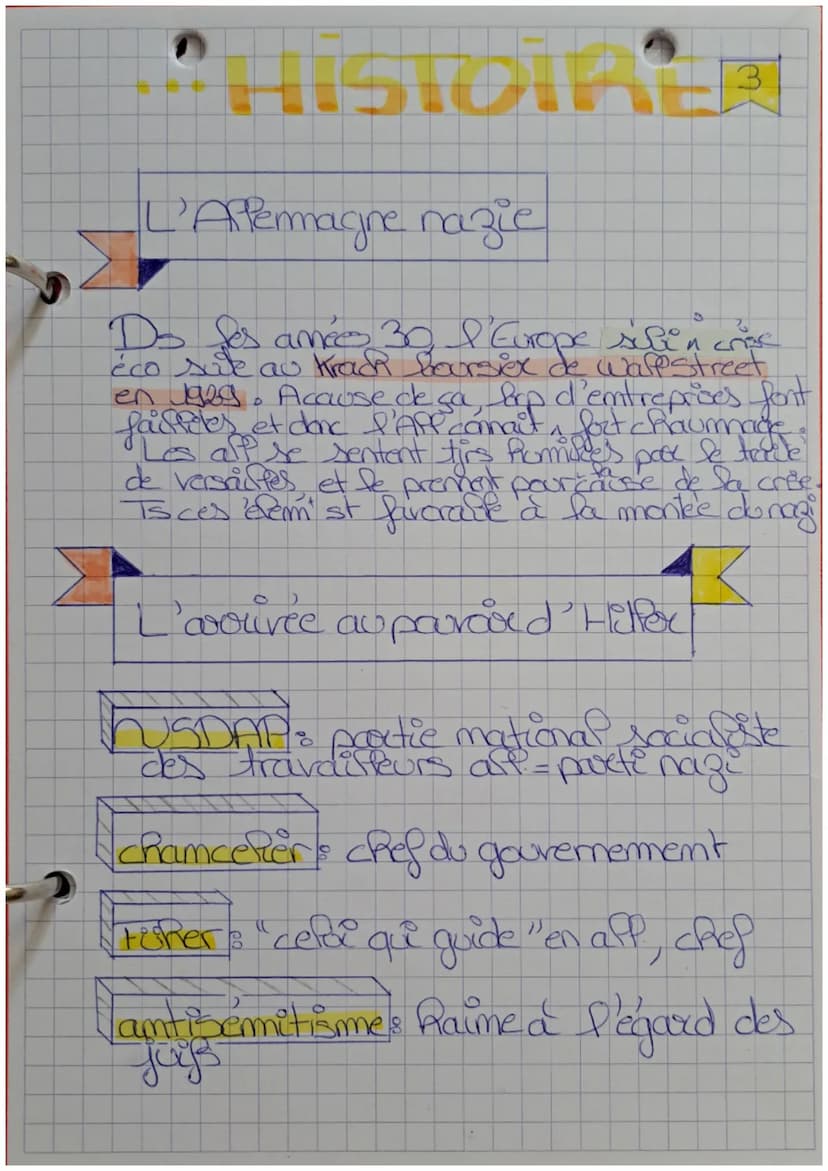 ... HISTOIRE 3
L'Allemagne nazie
Ds les années 30, l'Europe
éco suite au Krach boursier de Wallstreet
en 1929. A cause de ça, bcp d'entreprises font
faillites, et donc l'All connaît 1 fort chaumage.
Les all se sentent trjs humiliés par le traité
de versailles, et le prennent pour cause de la crise.
Ts ces élem' st favorable à la montée du nazi
L'arrivée au pouvoir d'Hitler
NSDAP : partie national socialiste
des travailleurs all = parti nazi
chancelier : chef du gouvernement
fürher : "celui qui guide" en all, chef
antisémitisme : haine à l'égard des
juifs